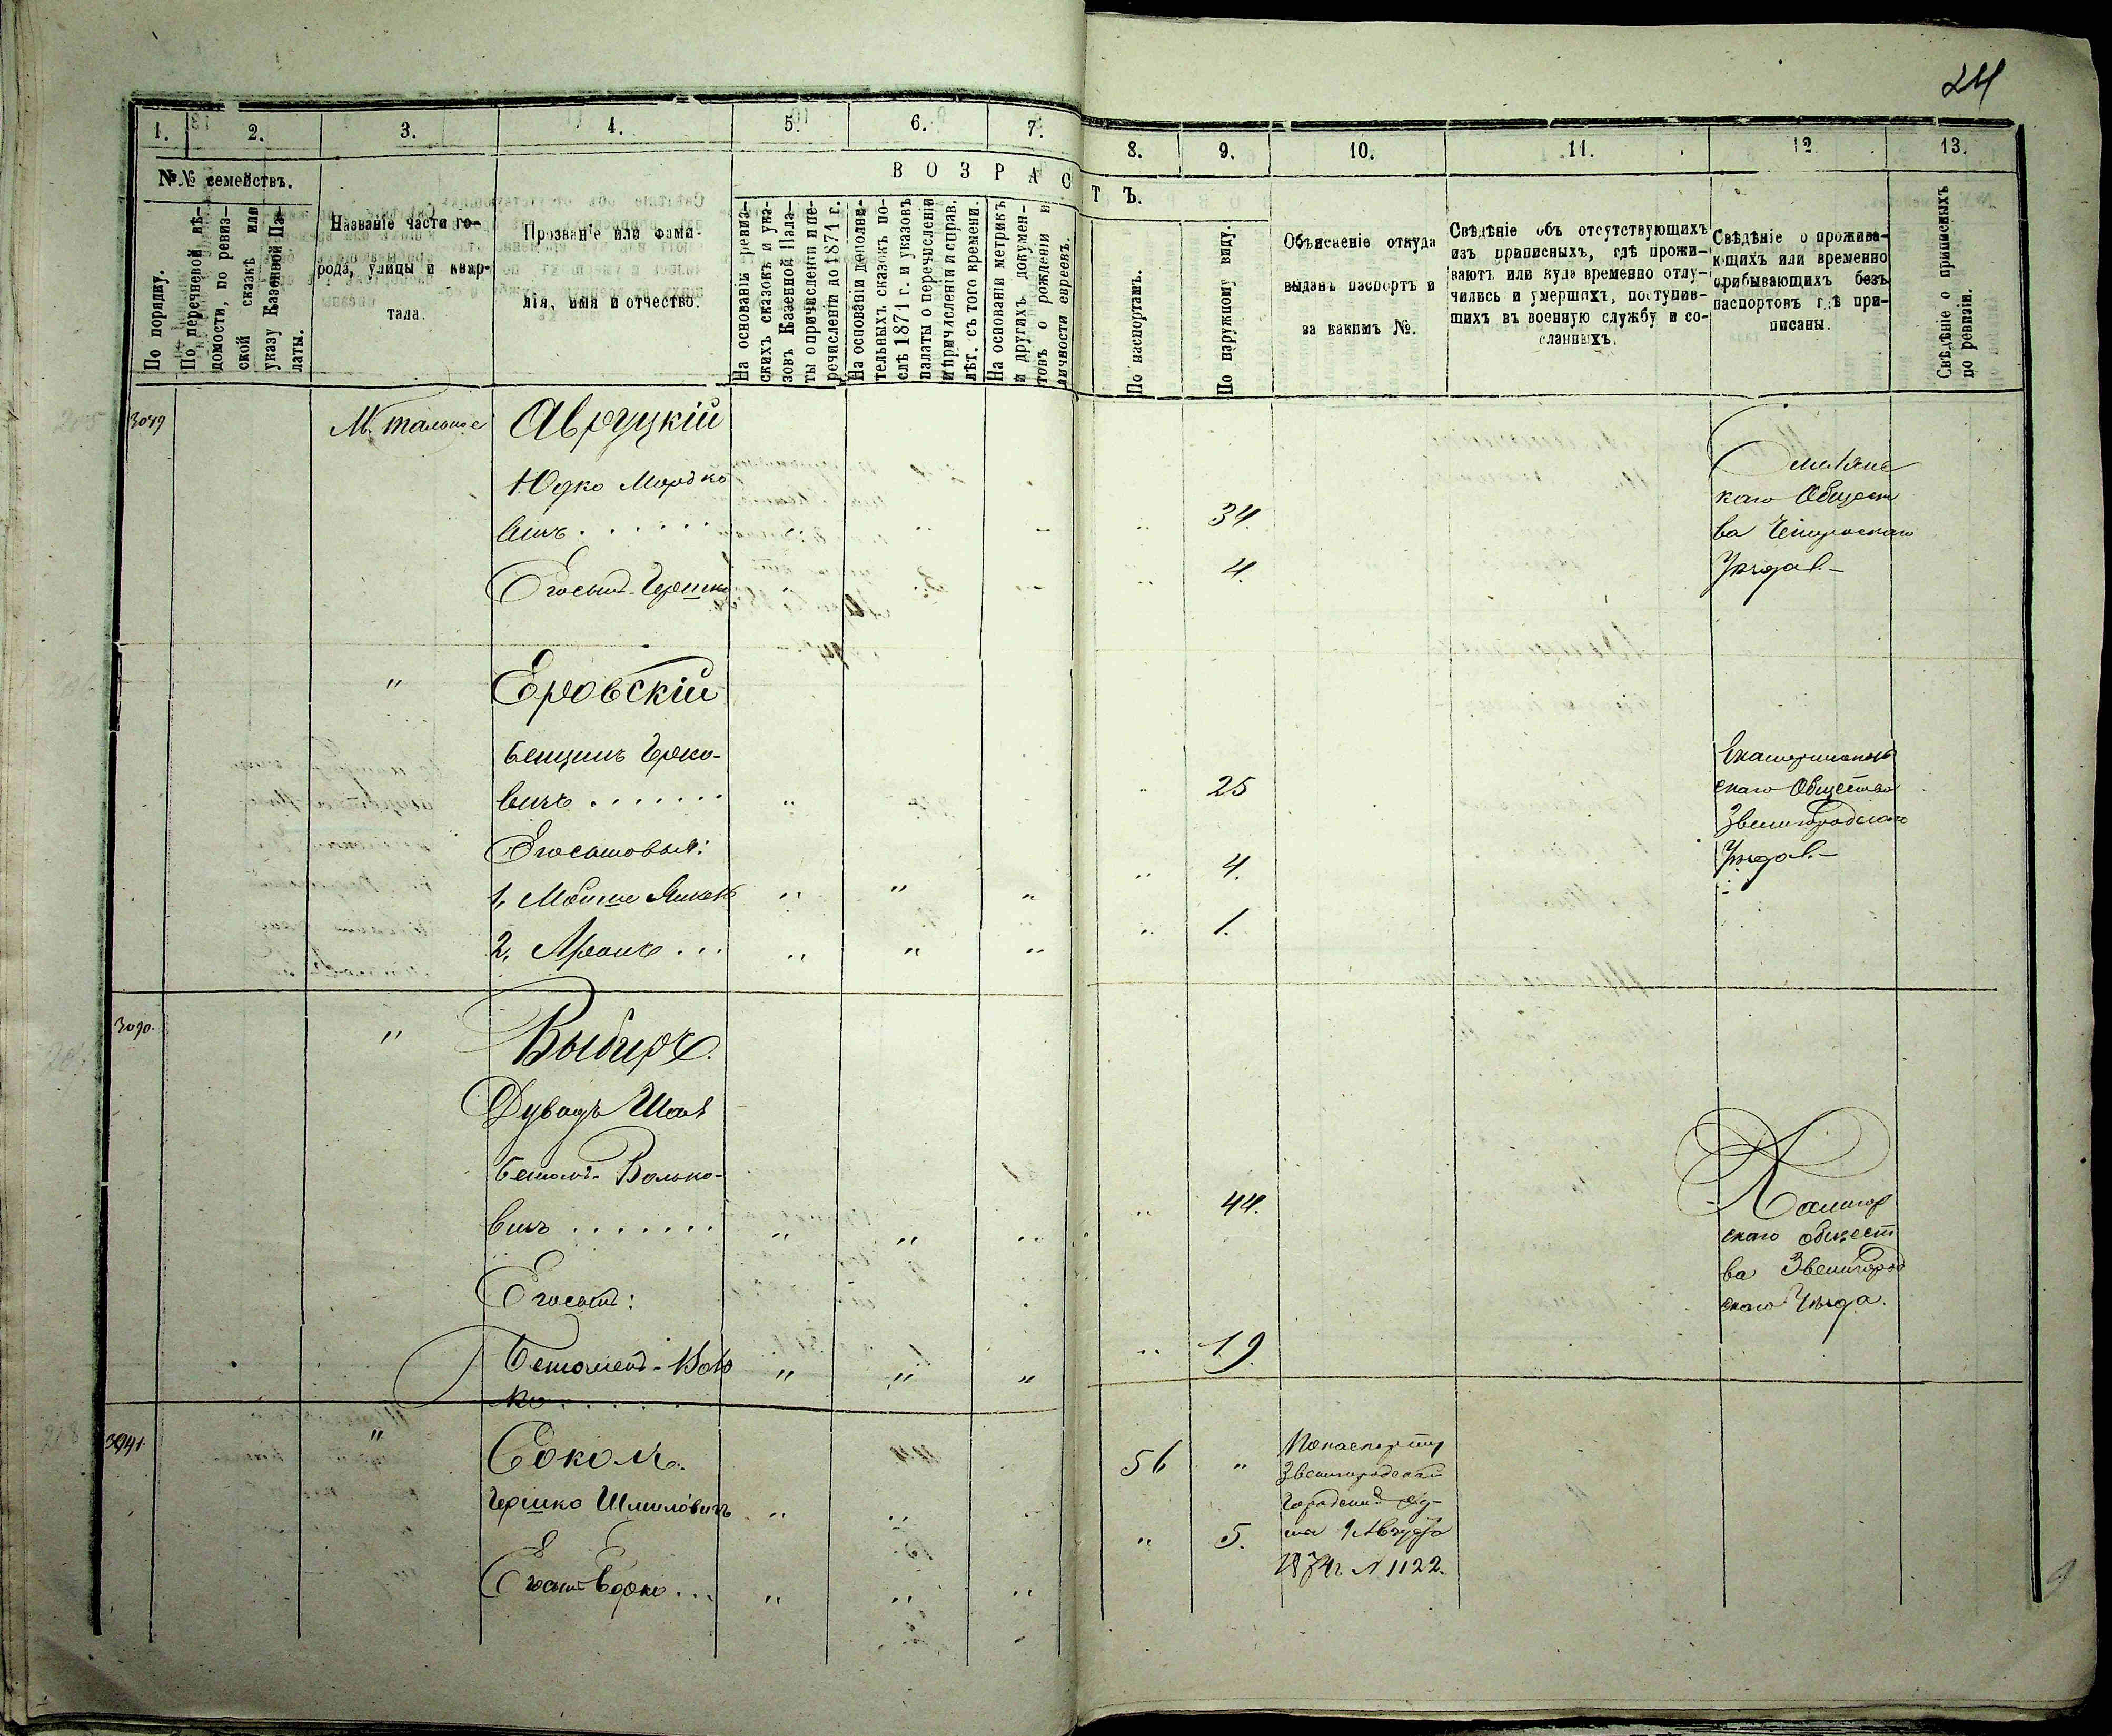 24
1.
2.
3.
4.
5.
6.
7.
8.
9.
10.
11.
12
13.
№№ семействъ.
ВОЗРАСТЪ.
По порядку.
По перечневой вѣ-
домости, по ревиз-
ской сказкѣ или
указу Казенной Па-
латы.
Названіе части го-
рода, улицы и квар-
тала.
Прозваніе или фами-
лія, имя и отчество.
На основаніи ревиз-
скихъ сказокъ и ука-
зовъ Казенной Пала-
ты о причисленіи и пе-
речисленіи до 1871 г.
На основаніи дополни-
тельныхъ сказокъ по-
слѣ 1871 г. и указовъ
палаты о перечисленіи
и причисленіи и справ.
лѣт. съ того времени.
На основаніи метрикъ
и другихъ докумен-
товъ о рожденіи и
личности евреевъ.
По паспортамъ.
По наружному виду.
Объясненіе откуда
выданъ паспортъ и
за какимъ №.
Свѣдѣніе объ отсутствующихъ
изъ приписныхъ, гдѣ прожи-
ваютъ или куда временно отлу-
чились и умершихъ, поступив-
шихъ въ военную службу и со-
сланныхъ.
Свѣдѣніе о прожива-
ющихъ или временно
прибывающихъ безъ
паспортовъ гдѣ при-
писаны.
Свѣдѣніе о приписныхъ
по ревизіи.
М. Тальное
Авруцкій
Юдко Мордко
вичъ . . . . . . 34.
Его сынъ Гершко 4.
Смѣлянс
каго Общест
ва Чигиринскаго
Уѣзда. –
" Еровскій
Бенціинъ Герко-
вичъ . . . . . . . 25
Его сыновья:
1, Мойше Янкель " " " " 4.
2, Аронъ . . . " " " " 1.
Екатеринопольс
скаго Общества
Звенигородскаго
Уѣзда. –
3090. " Выбиръ.
Дувидъ Шая
Волько-
вичъ . . . . . . . " " " " 44.
Его сынъ:
" " " " 19.
ко . . . . .
Калниг
скаго общест
ва Звенигород
скаго Уѣзда.
" Соколъ.
Гершко Шмиловичъ " " 56 "
Его сынъ Борко . . . " " " " 5.
По паспорту
Звенигородской
Городской Ду-
мы 9 Августа
1874 г. № 1122.